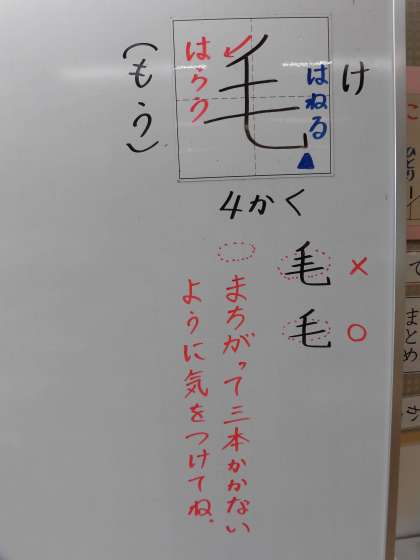 け
(もう)
はらう
毛
はねる
4かく
毛 ×
毛 ○
まちがって三本かかない
ように気をつけてね.
こ
ひとり
て
まとめ